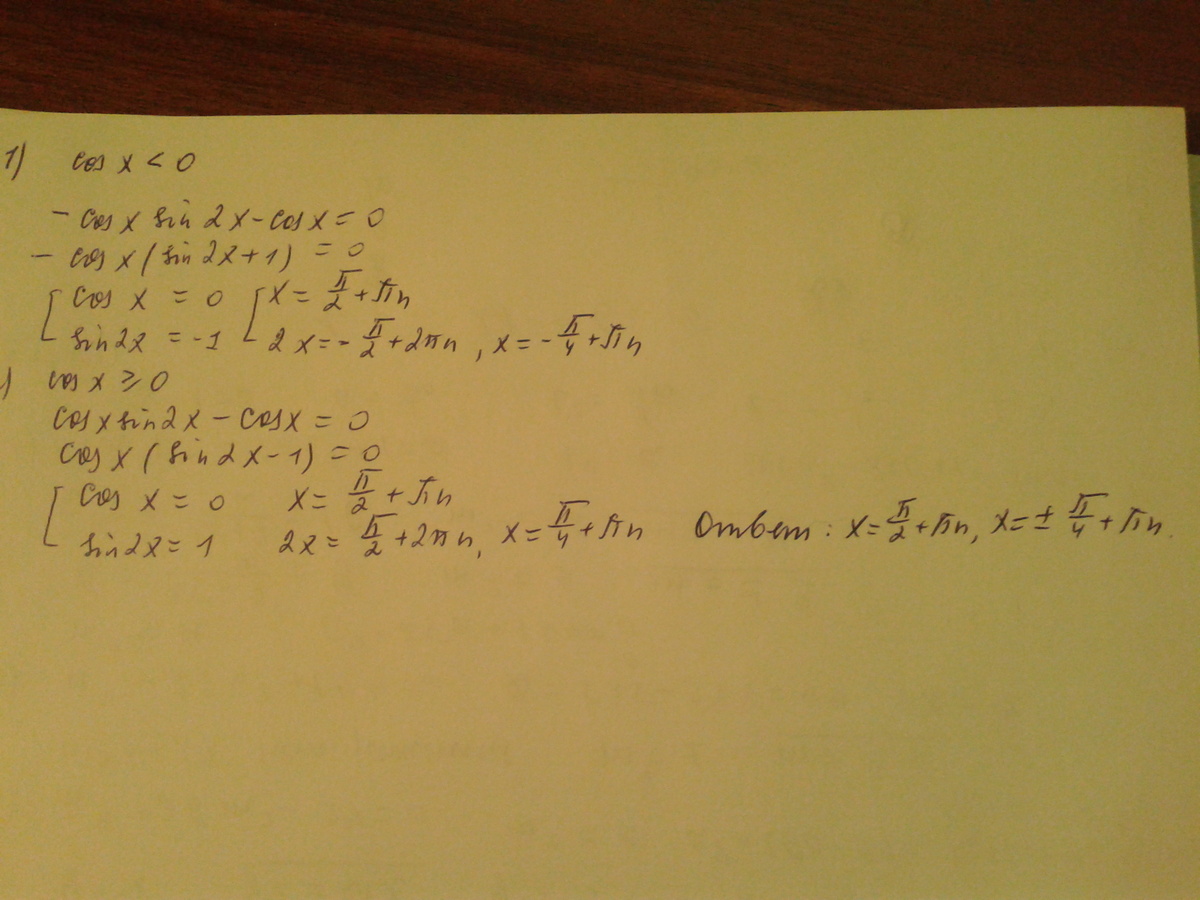 1) cos x < 0
- cos x sin 2x - cos x = 0
- cos x (sin 2x + 1) = 0
[ cos x = 0 [ x = π/2 + πn
sin 2x = -1 2x = - π/2 + 2πn, x = - π/4 + πn
) cos x ⩾ 0
cos x sin 2x - cos x = 0
cos x (sin 2x - 1) = 0
[ cos x = 0 x = π/2 + πn
sin 2x = 1 2x = π/2 + 2πn, x = π/4 + πn Ответ: x = π/2 + πn, x = ± π/4 + πn.